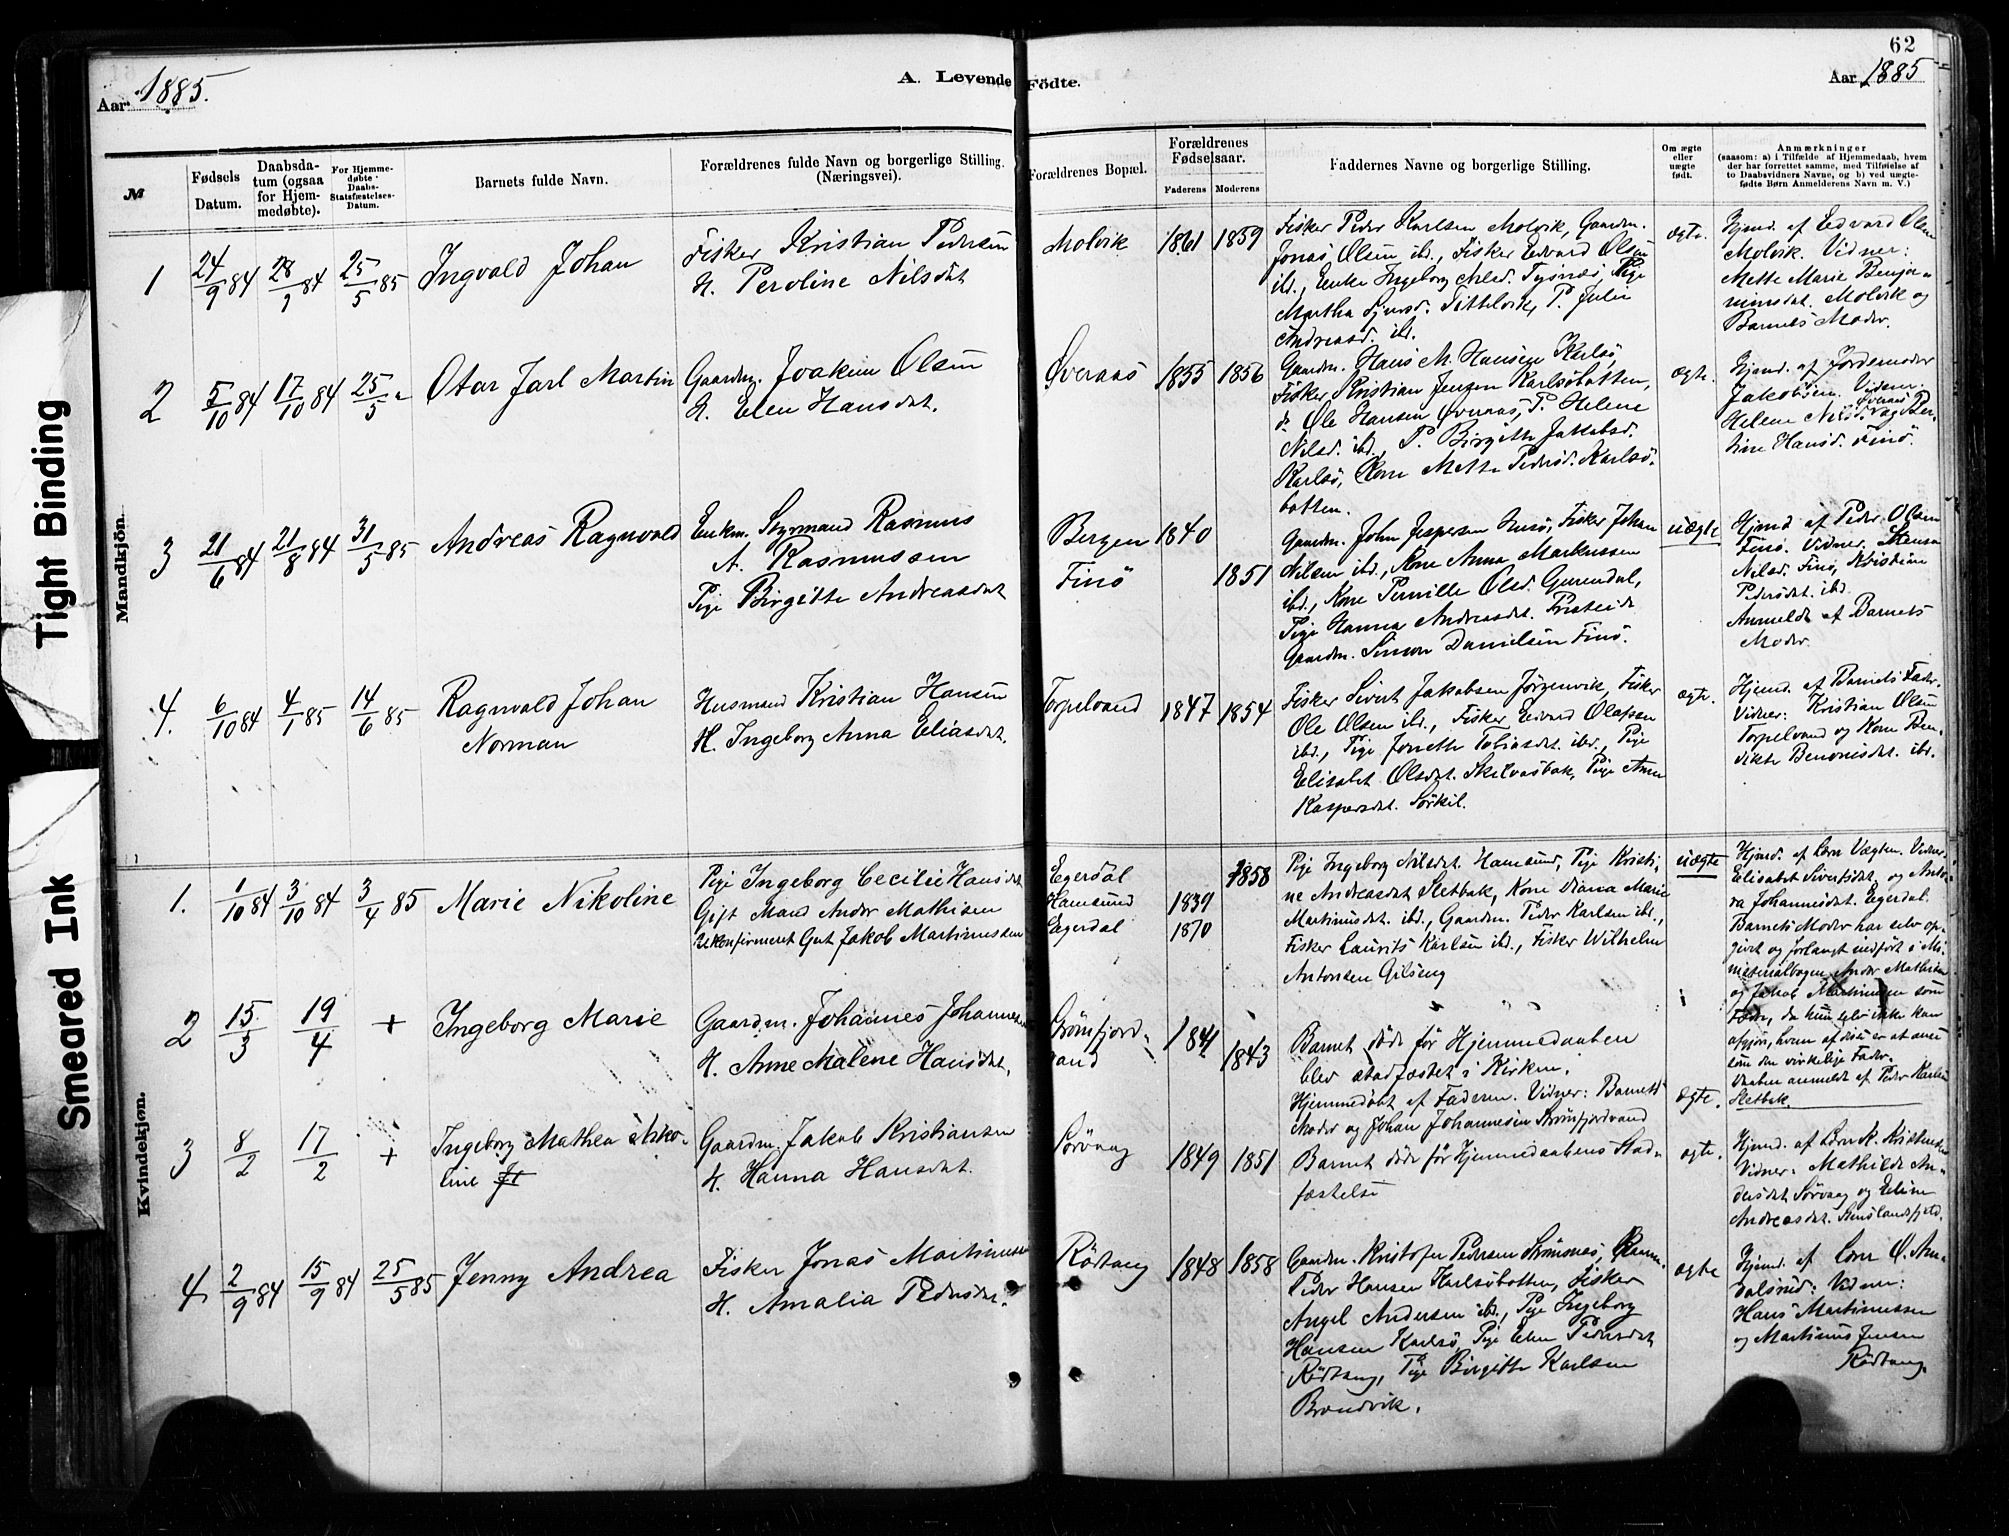 62
Aar 1885.
A. Levende Födte.
Aar 1885
№
Fødsels Datum.
Daabsdatum (ogsaa for Hjemmedøbte).
For Hjemmedøbte Daabs-Statsfæstelses-Datum.
Barnets fulde Navn.
Forældrenes fulde Navn og borgerlige Stilling. (Næringsvei).
Forældrenes Bopæl.
Forældrenes Fødselsaar.
Faderens Moderens
Faddernes Navne og borgerlige Stilling.
Om ægte eller uægte født.
Anmærkninger
(saasom: a) i Tilfælde af Hjemmedaab, hvem der har forrettet samme, med Tilføielse af to Daabsvidners Navne, og b) ved uægtefødte Børn Anmelderens Navn m. V.)
Tight Binding
Smeared Ink
Mandkjön.
1
24/9 84
28/9 84
25/5 85
Ingvald Johan
Fisker Kristian Pedersen
H. Peroline Nilsdat
Molvik
1861 1859
Fisker Peder Karlsen Molvik, Gaardm.
Jonas Olsen ibd., Fisker Edvard Olsen
ibd., Enke Ingeborg Tysnes, Pige
Martha Sjursd. Sittelvik, P. Julie
Andreasd. ibd.
ægte.
Hjemd. af Edvard Olsen
Molvik. Vidner:
Mette Marie Benja-
minsdat. Molvik og
Barnets Moder.
2
5/10 84
17/10 84
25/5 "
Otar Jarl Martin
Gaardm. Joakim Olsen
H. Elen Hansdat.
Øveraas
1855 1856
Gaardm. Hans M. Hansen Karlsö,
Fisker Kristian Jensen Karlsöbotten,
do Ole Hansen Øveraas, P. Helene
Nilsd. ibd., P. Birgitte Jakobsd.
Karlsö, Kone Mette Pedersd. Karlsö-
botten.
ægte.
Hjemd. af Jordemoder
Jakobsen. Vidner:
Helene Nilsd. Øveraas og Ber-
tine Hansd. Finö.
3
21/6 84
21/8 84
31/5 85
Andreas Ragnvald
Enkm. Styrmand Rasmus
A. Rasmussen
Pige Birgitte Andreasdat
Bergen 1840
Finö 1851
Gaardm. John Jespersen, Fisker Johan
Nilsen ibd., Kone Anna Markussen
ibd., Kone Pernille Olsd.
Pige Hanna Andreasdat.
Gaardm. Simon Danielsen Finö.
uægte
Hjemd. af Peder Olsen
Finö. Vidner:
Nilsd. Finö, Kristine
Pedersdat. ibd.
Anmeldt af Barnets
Moder.
4.
6/10 84
4/1 85
14/6 85
Ragnvald Johan
Norman
Husmand Kristian Hansen
H. Ingeborg Anna Eliasdat.
Torpelvand
1847 1854
Fisker Sivert Jakobsen Jörgenvik, Fisker
Ole Olsen ibd., Fisker Edvard Olafsen
ibd., Pige Tobiasdat. ibd., Pige
Elisabet Olsdat. Skilvasbak, Pige Anne
Kaspersdat. Sörkil.
ægte.
Hjemd. af Barnets Fader.
Vidner: Kristian Olsen
Torpelvand og Kone Ben-
dikte Benonisdat. ibd.
Kvindekjøn.
1.
1/10 84
3/10 84
3/4 85
Marie Nikoline
Pige Ingeborg Cecilie Hansdat
Gift Mand Andor Mathisen
Ukonfirmeret Gut Jakob Martinussen
Egerdal 1858
Hamsund 1839
Egerdal 1870
Pige Ingeborg Nilsdat. Hamsund, Pige Kristi-
ne Andreasdat Sletbak, Kone Diana Marie
Martinusdat. ibd., Gaardm. Peder Karlsen ibd.,
Fisker Laurits Karlsen ibd., Fisker Wilhelm
Antonsen
uægte
Hjemd. af Lærer Vidner:
Elisabet Sivertsdat. og
Johannesdat. Egerdal.
Barnets Moder har selv op-
givet og forlangt indført i Mi-
nisterialbogen Andor Mathisen
og Jakob Martinussen som
Fædre, da hun selv ikke kan
afgjøre, hvem af disse er at anse
som den virkelige Fader.
Daaben anmeldt af Peder Karlsen
Sletbak.
2
15/3
19/4
+
Ingeborg Marie
Gaardm. Johannes Johannesen
H. Anne Malene Hansdat.
Strömfjord-
vand
1841 1843
Barnet döde för Hjemmedaaben
blev stadfæstet i Kirken.
Hjemmedøbt af Faderen. Vidner: Barnets
Moder og Johan Johannesen Strömfjordvand
ægte.
3
8/2
17/2
+
Ingeborg Mathea Niko-
line
Gaardm. Jakob Kristiansen
H. Hanna Hansdat.
Sörvaag
1849 1851
Barnet döde för Hjemmedaabens Stad-
fæstelse
ægte.
Hjemd. af Lærer K. Kristensen
Vidner: Mathilde An-
dersdat Sörvaag og Eline
Andreasdat.
4
2/9 84
15/9 84
25/5 85
Jenny Andrea
Fisker Jonas Martinussen
H. Amalia Pedersdat.
Rödtang
1848 1858
Gaardm. Kristofer Pedersen Strömsnes, Gaardm.
Peder Hansen Karlsöbotten, Fisker
Angel Andersen ibd., Pige Ingeborg
Hansen Karlsö Pige Elen Pedersdat
Rödtang, Pige Birgitte Karlsen
Brandvik.
ægte
Hjemd. af Lærer
Vidner:
Hans Martinussen
og Martinus Jensen
Rödtang.